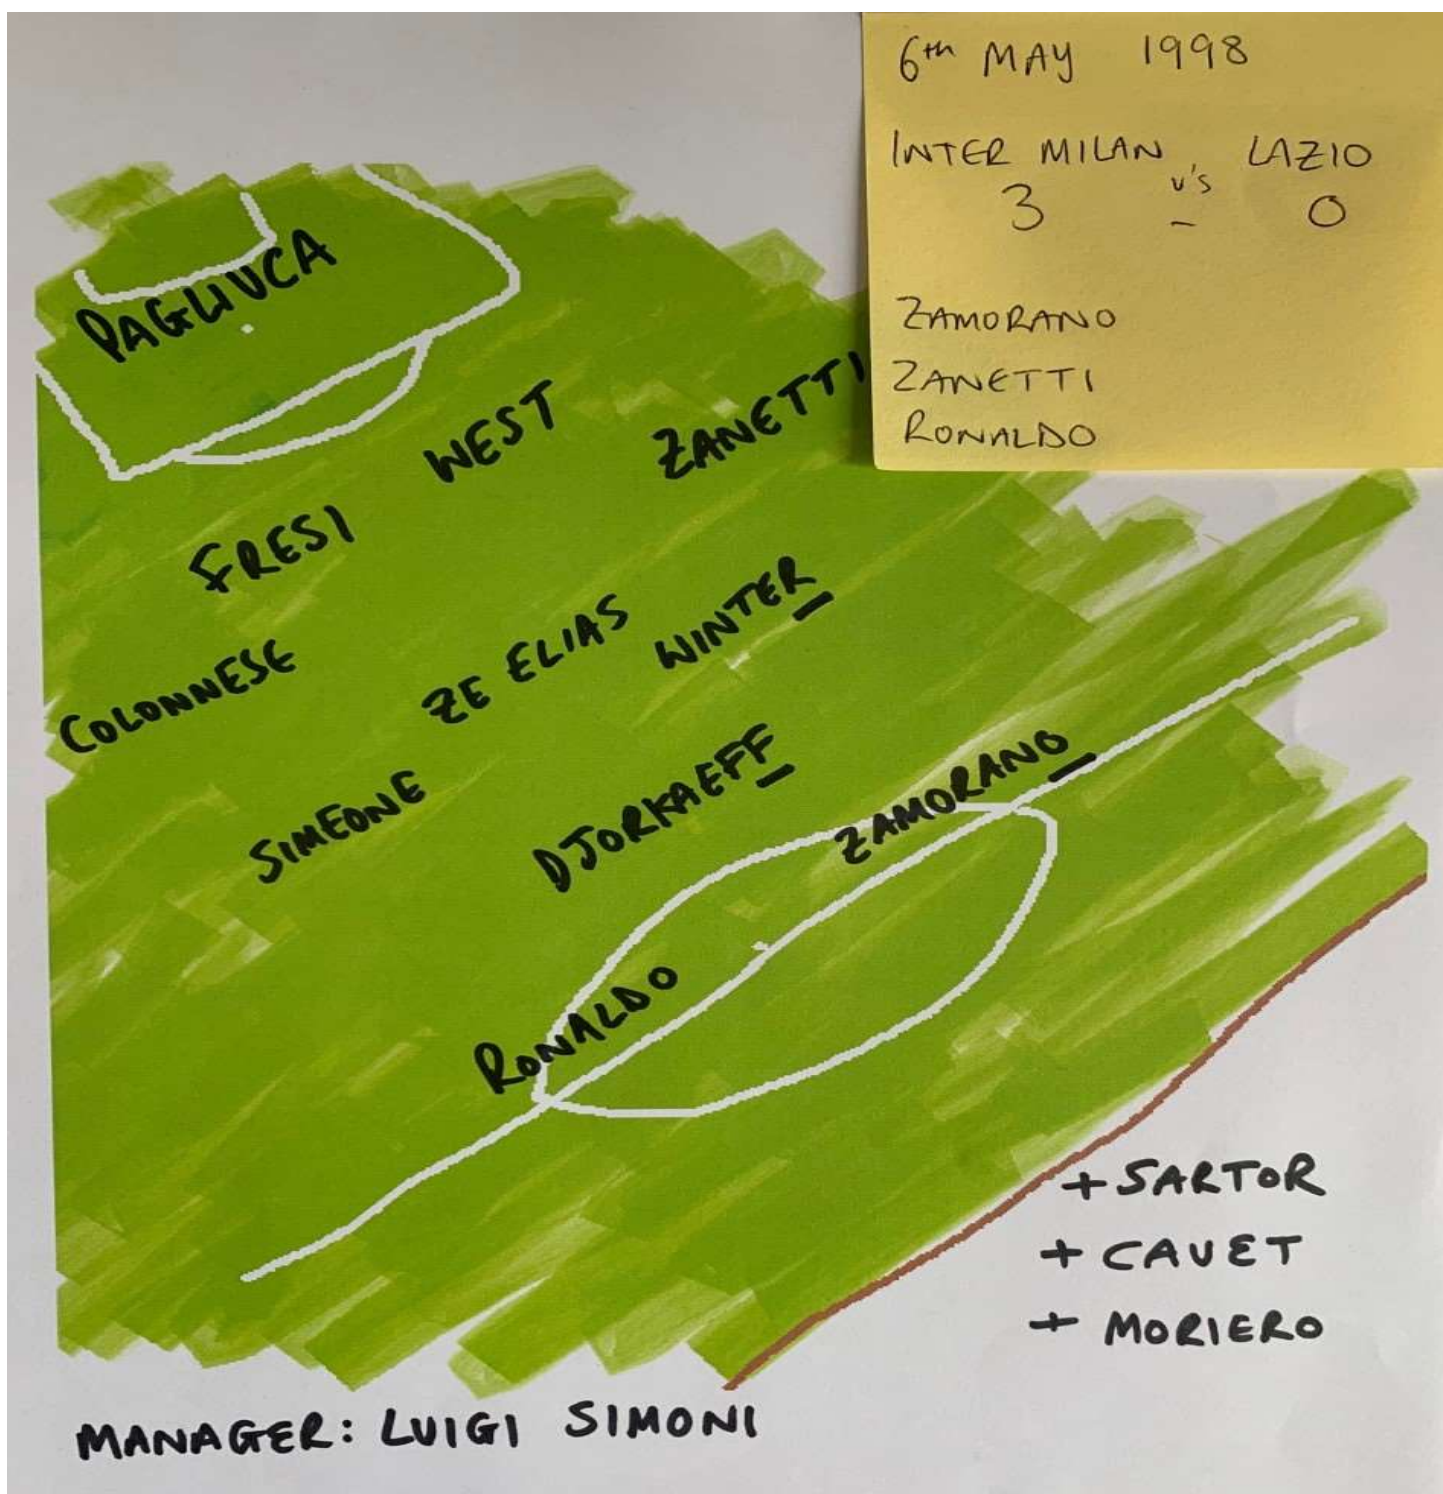 6th MAY 1998
INTER MILAN v's LAZIO
3 - 0
ZAMORANO
ZANETTI
RONALDO
PAGLIUCA
WEST
ZANETTI
FRESI
COLONNESE
ZE ELIAS
WINTER
SIMEONE
DJORKAEFF
ZAMORANO
RONALDO
+ SARTOR
+ CAUET
+ MORIERO
MANAGER: LUIGI SIMONI